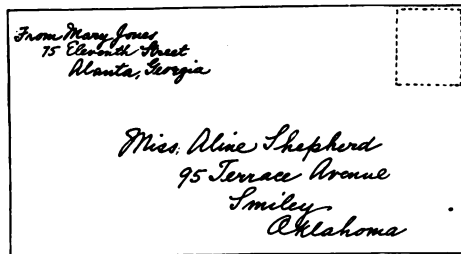 From Mary Jones
75 Eleventh Street
Alanta, Georgia
Miss. Aline Shepherd
95 Terrace Avenue
Smiley
Oklahoma